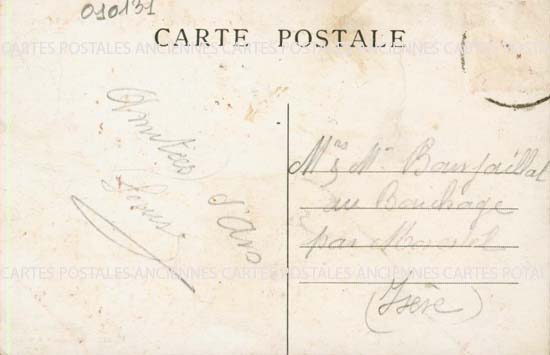 010131
CARTE POSTALE
CARTES POSTALES ANCIENNES CARTES POSTALES ANCIENNES CARTES POSTALES
Amitiés
d'Ars
Mrs & Mme
au Bouchage
par Morestel
(Isère)
CARTES POSTALES ANCIENNES CARTES POSTALES ANCIENNES CARTES POSTALES